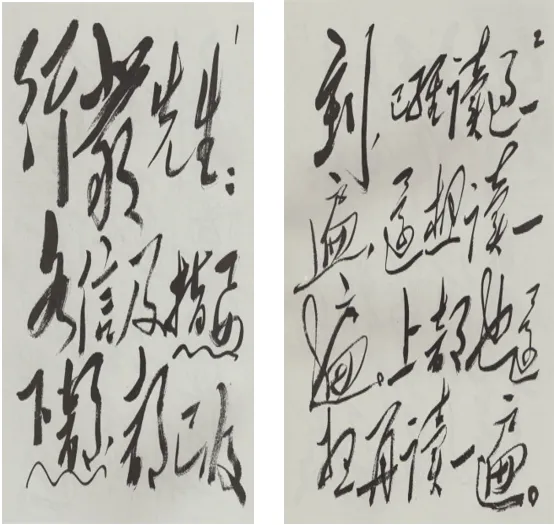 1
行严先生：
各信及指要
下部，都已收
2
到，已经读过一
遍，还想读一
遍。上部也还
想再读一遍。